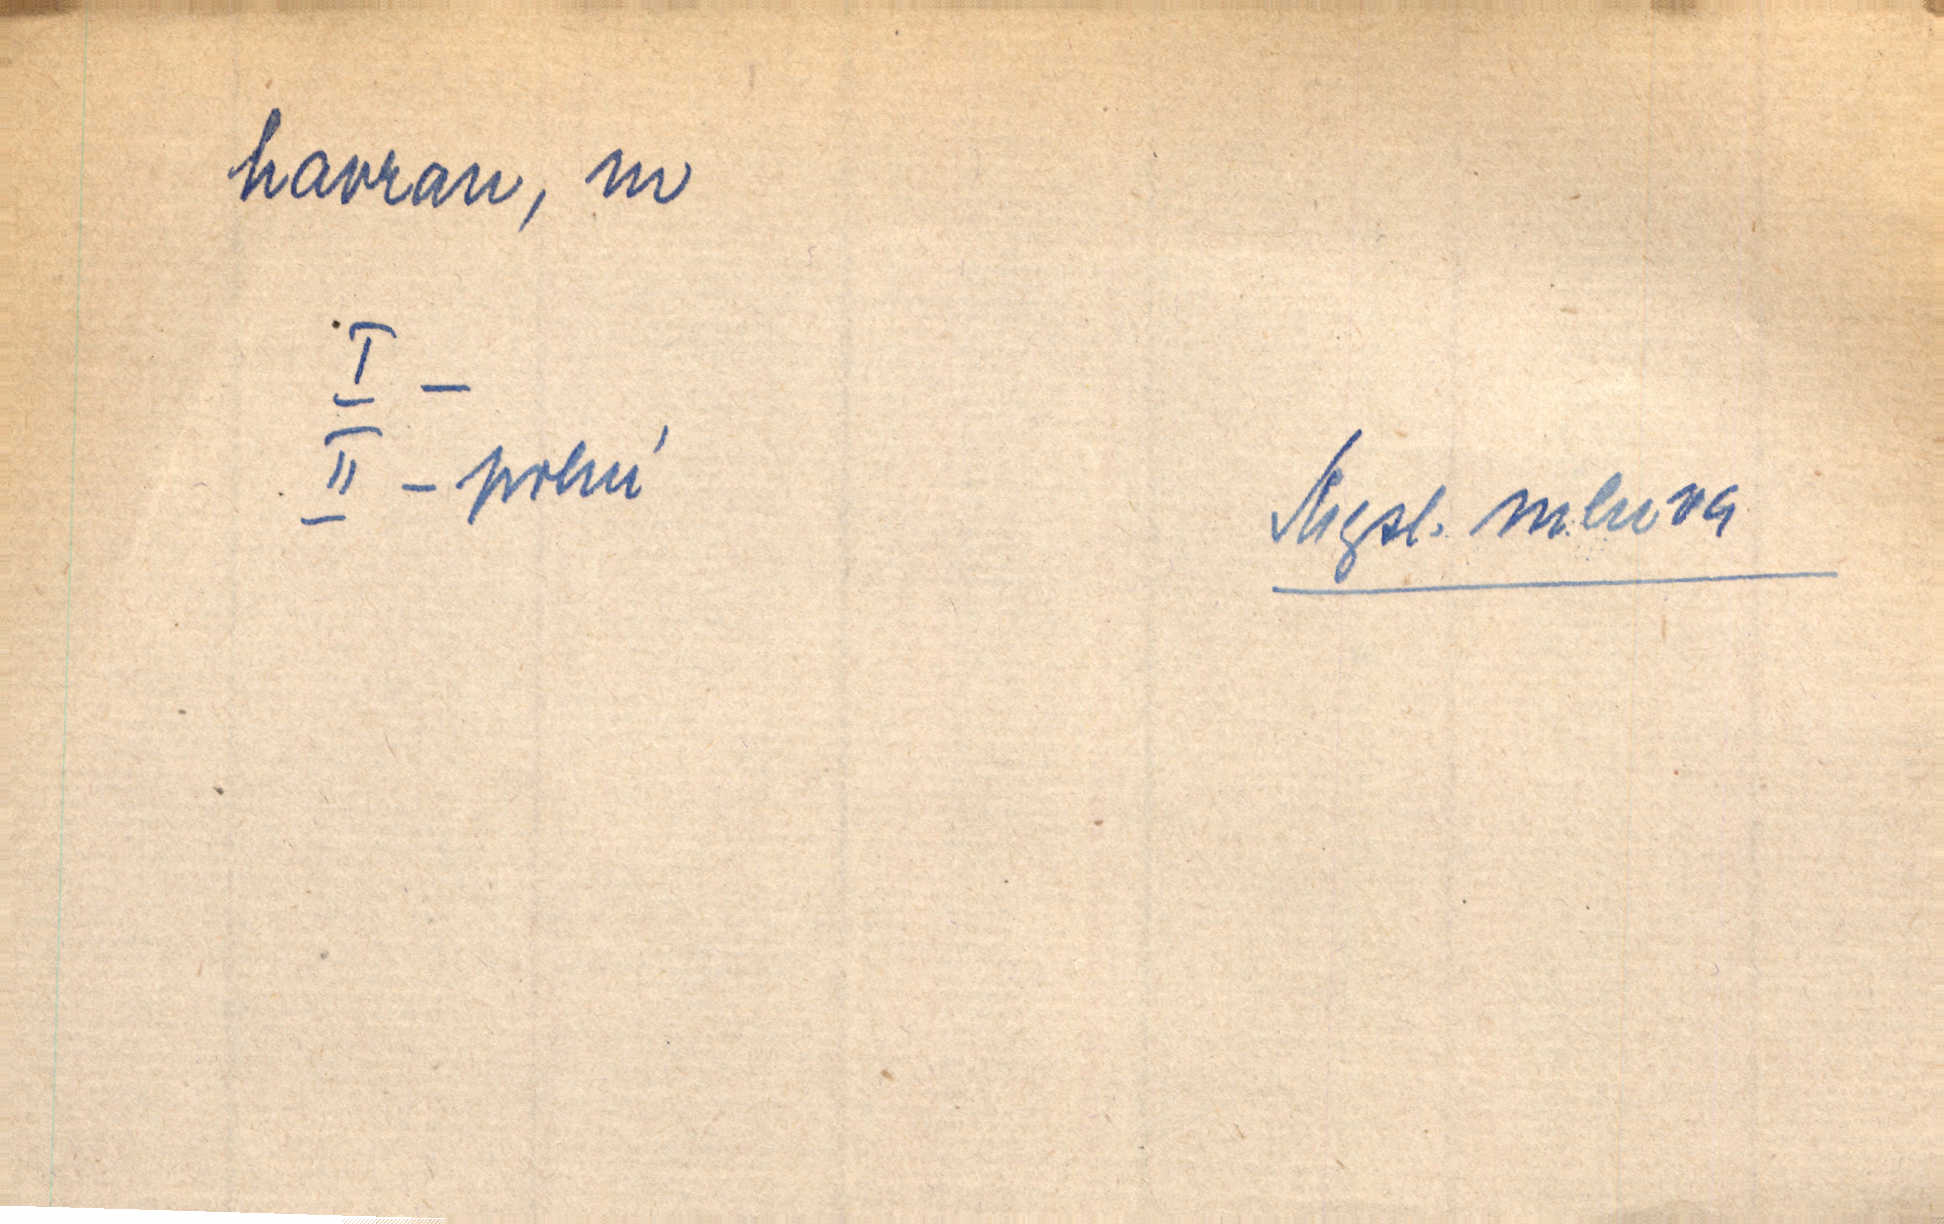 havran, m
I –
II – polní
Mysl. mluva